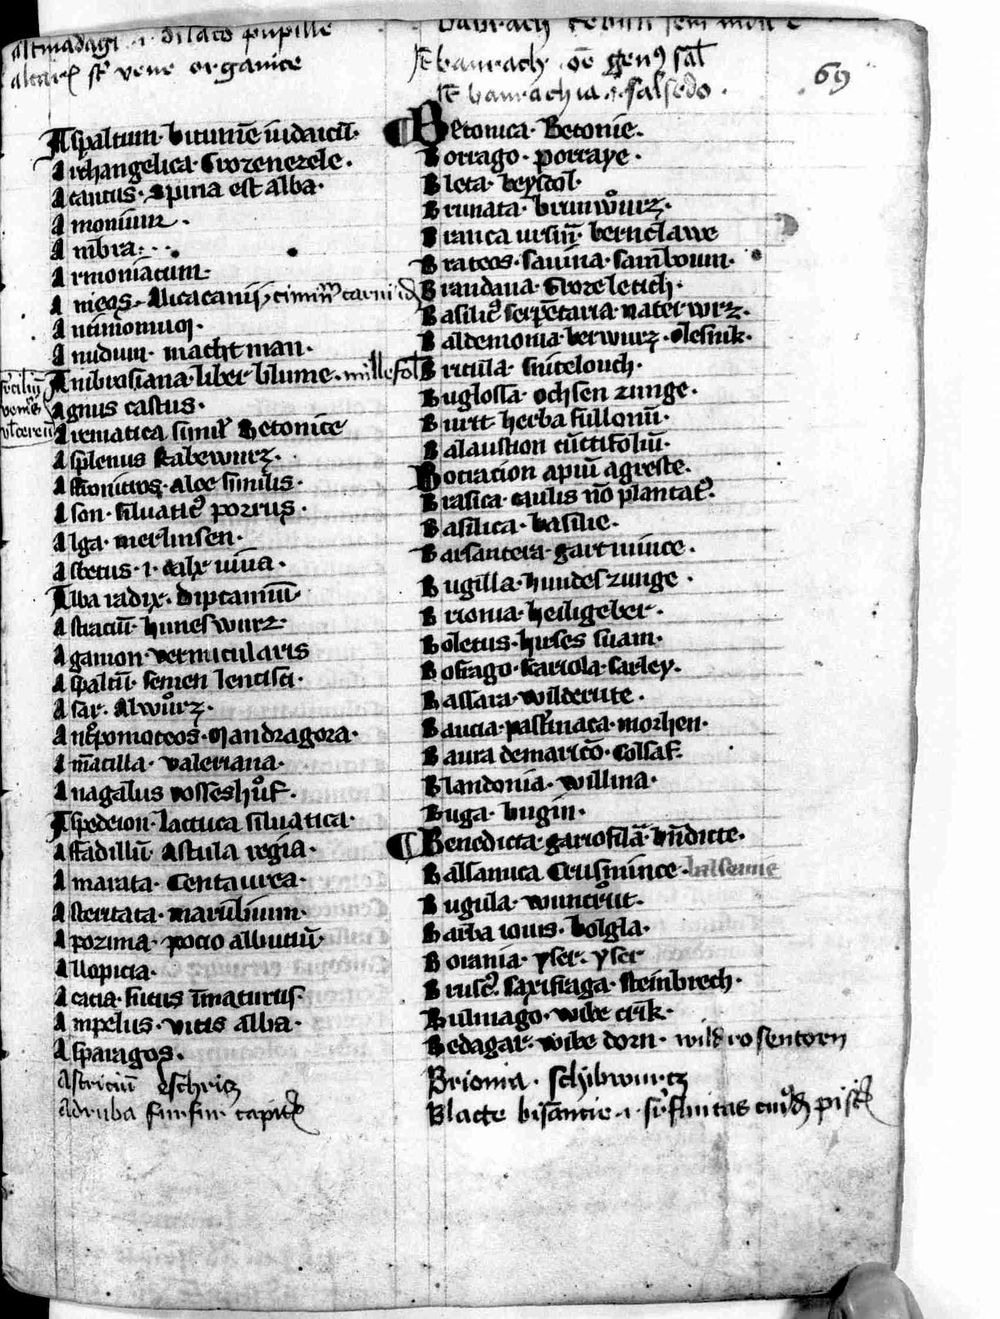 altmadagi .i. dilatō pupille
alcarę st vene organice
Aspaltum. bitumē iudaicū.
Archangelica. Grozenezele.
Acantus. Spina est alba.
Amonium.
Ambra.
Armoniacum.
Antimonium.
Anudum. macht man.
Ambrosiana. lieber blume. millefol
Agnus castus.
Arematica simil' Betonice
Asplenus Rabewurz.
Ason. siluatic' porrus.
Alga. merlinsen.
Astetus .i. calx uiua.
Alba radix. diptamnū
Astraciū. huneswurz.
Agamon. vermicularis
Aspaltū. semen lentisci.
Asar. Alwůrz.
Antipomoteos. Mandragora.
Amātilla. valeriana.
Anagalus rosseshůf.
Aspedeion. lactuca siluatica.
Astadillū. Astula regia.
Amarata. Centaurea.
Asteritata. marubium.
Apozima. pocio albutiū
Allopicia.
Acacia. sucus īmaturus.
Ampelus. vitis alba.
Asparagos.
Astriciū Eschritz
Adruba furfur capitis
69
st baurach. oē genus sal
st baurachia .i. salsedo.
Betonica. Betonie.
Borrago. porraye.
Bleta. beyscol.
Brunata. brunwůrz.
Branca ursin. bernclawe
Brateos. sauina. sainboum.
Brandana. Grozeletich.
Basilic' serpētaria. nater wrz.
Baldemonia. berwurz. Olesnik.
Britula. snitelouch.
Buglossa. ochsen zunge.
Burit herba fullonū.
Balaustion cūctifoliū.
Botracion apiū agreste.
Brasica. caulis nō plantat'.
Basilica. basilie.
Barsantera. gart mince.
Bugilla. hundeszunge.
Brionia. heiligeber.
Boletus. huses suam.
Bofrago. Kariola. Carley.
Bassara. wilderute.
Baucia. pastinaca. morhen.
Blandonia. willina.
Buga. bugin.
Benedicta gariofilā. bn̄dicte.
Balsamica Crusmince. balsemie
Bugula. wuntcrut.
Barba iouis. bolgla.
Boiania. yser. yser
Brusc'. saxifraga. steinbrech.
Bulmago. wibe crik.
Bedagar. wibe dorn. wild rosentorn
Brionia. schibwurtz
Blacte bisantie .i. sūfluitas cuiusd piscis